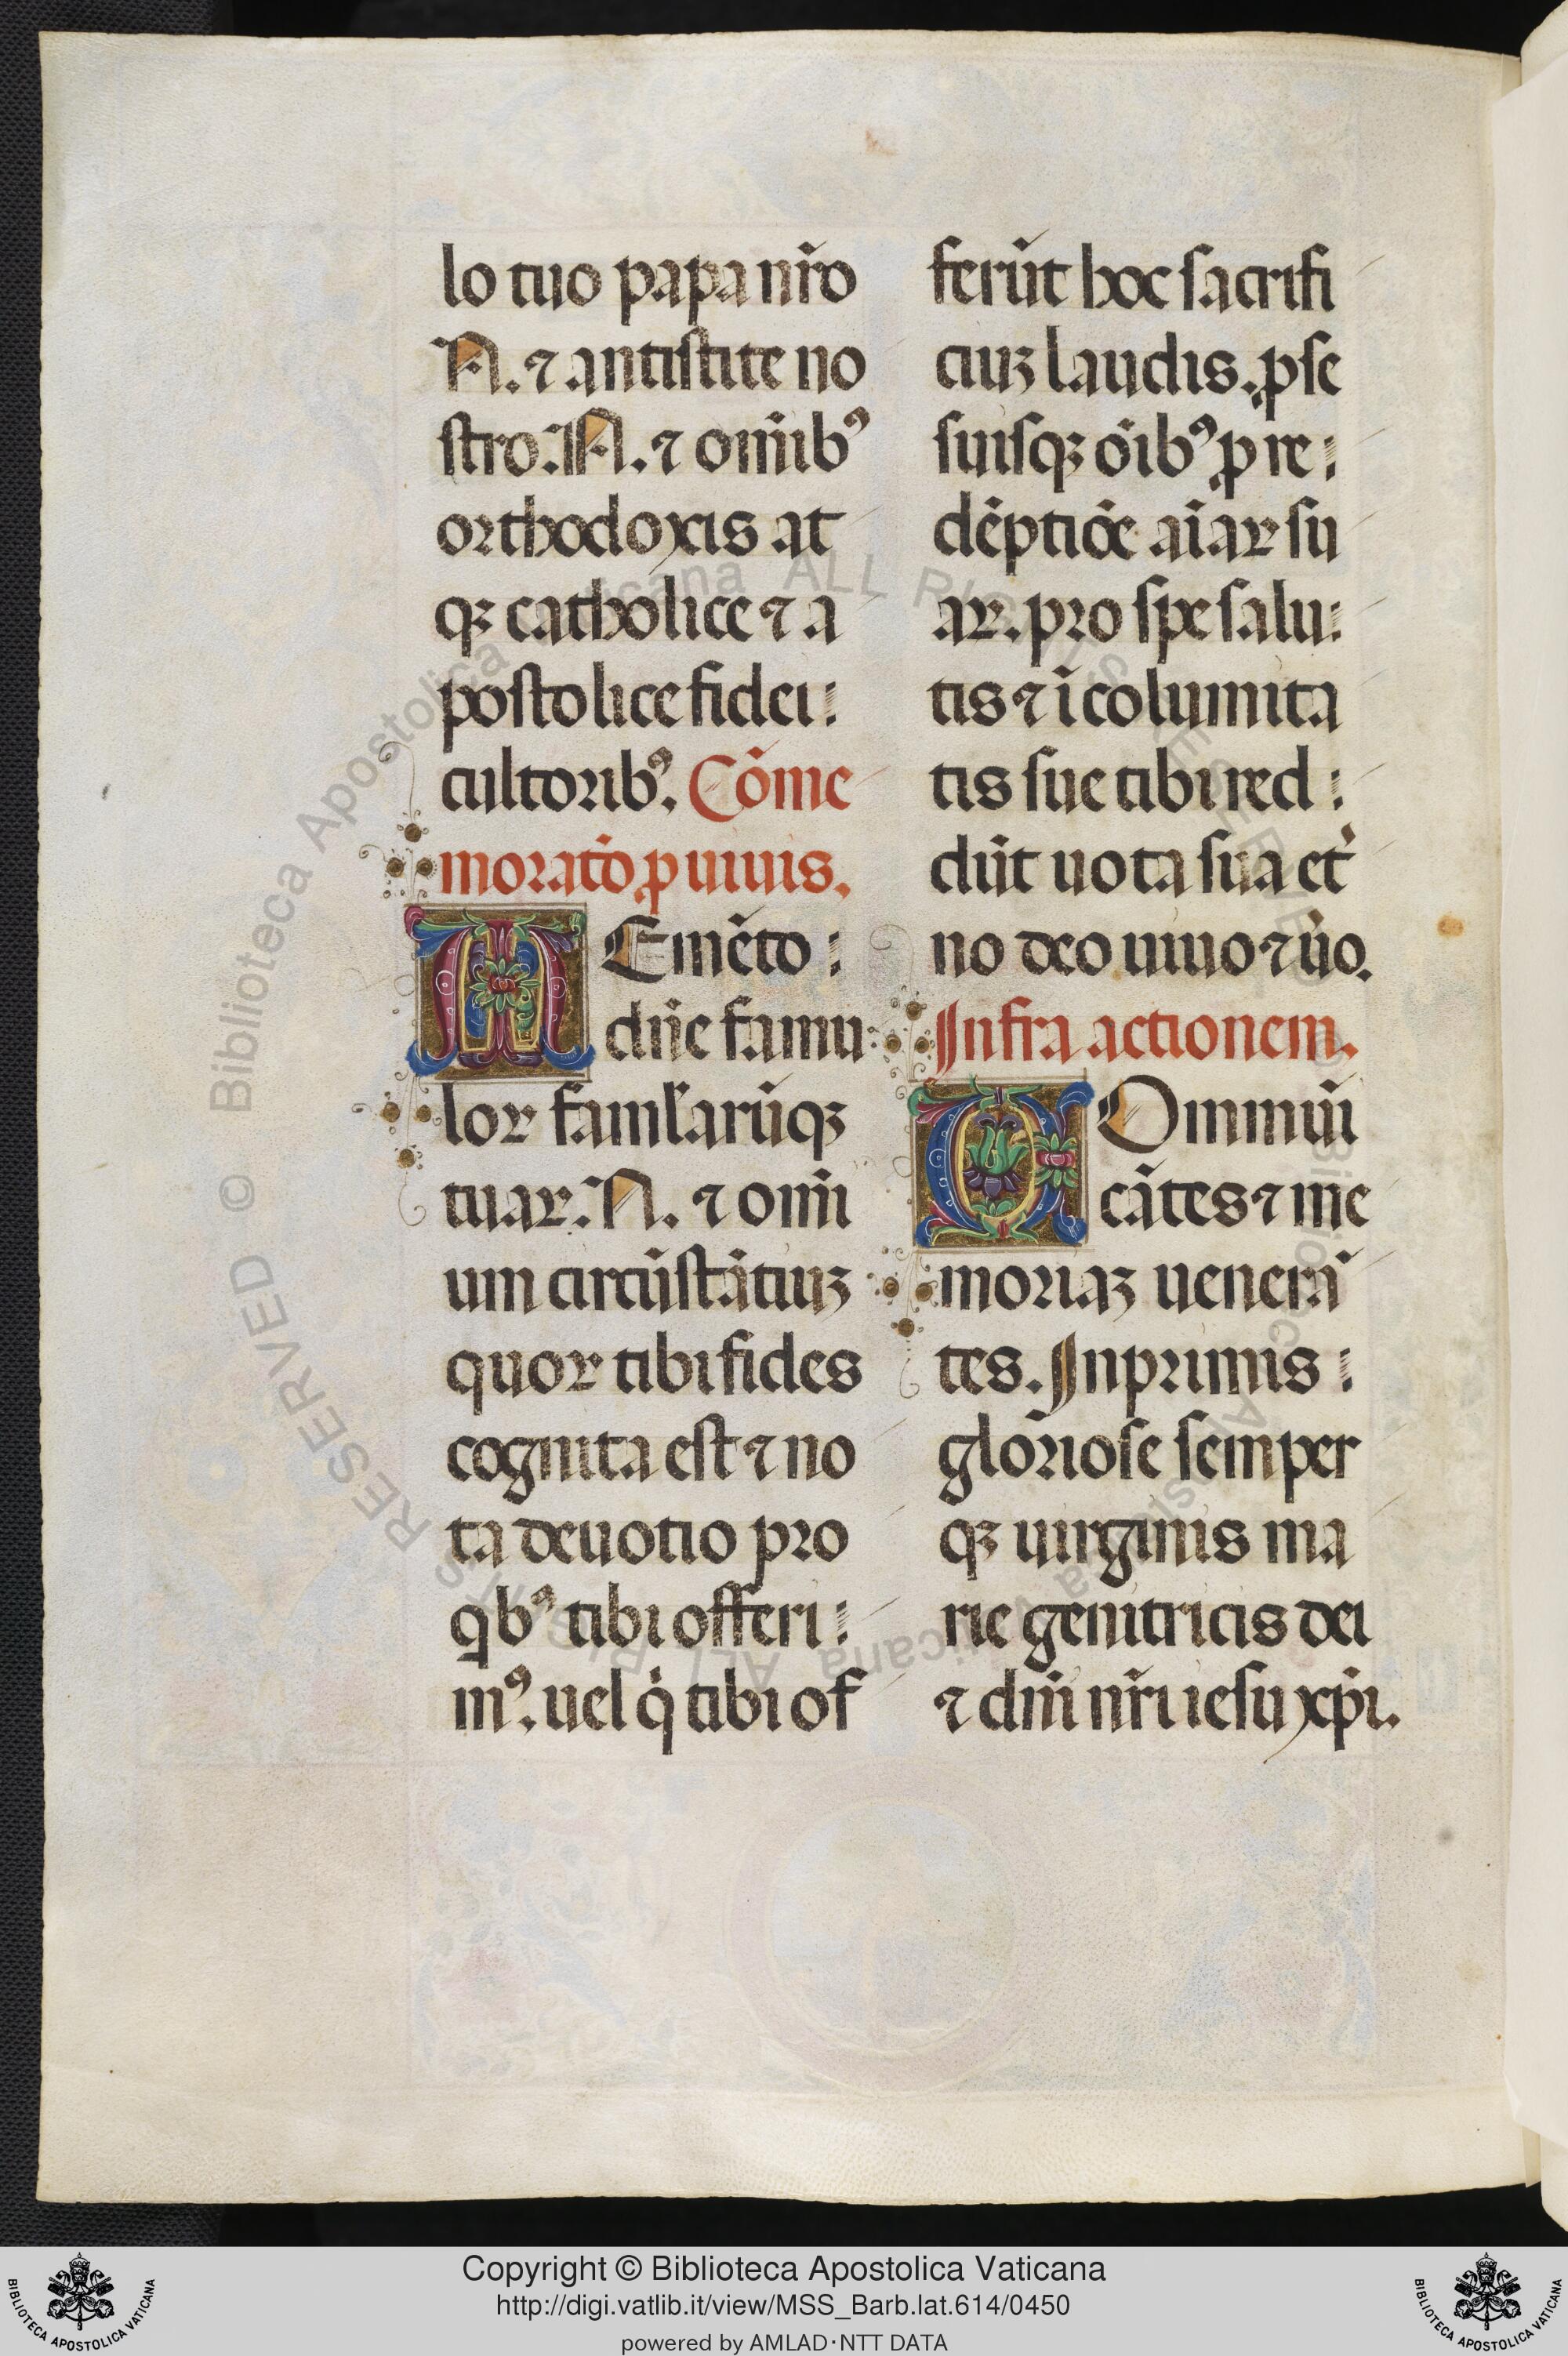 lo tuo papa nr̄o
N. ⁊ antistite no
stro. N. ⁊ om̄ibꝰ
orthodoxis at
qꝫ catholice ⁊ a
postolice fidei:
cultoribꝰ. Cōme
moratō ꝓ uiuis.
MEmēto:
dn̄e famu
loꝝ faml̄arūqꝫ
tuaꝝ. N. ⁊ om̄i
um circūstātiuꝫ
quoꝝ tibi fides
cognita est ⁊ no
ta deuotio pro
qbꝰ tibi offeri:
mꝰ. uel q̇ tibi of
ferūt hoc sacrifi
ciuꝫ laudis. ꝓ se
suisqꝫ oībꝰ ꝓ re:
dēptiōe aīaꝝ su
aꝝ. pro spe salu:
tis ⁊ īcolumita
tis sue tibi red:
dūt uota sua et̓
no deo uiuo ⁊ u̓o.
Infra actionem.
COmmūi
cātes ⁊ me
moriaꝫ uenerā
tes. Inprimis:
gloriose semper
qꝫ uirginis ma
rie genitricis dei
⁊ dn̄i nr̄i iesu xp̄i.
Copyright © Biblioteca Apostolica Vaticana
http://digi.vatlib.it/view/MSS_Barb.lat.614/0450
powered by AMLAD·NTT DATA
BIBLIOTECA APOSTOLICA VATICANA
BIBLIOTECA APOSTOLICA VATICANA